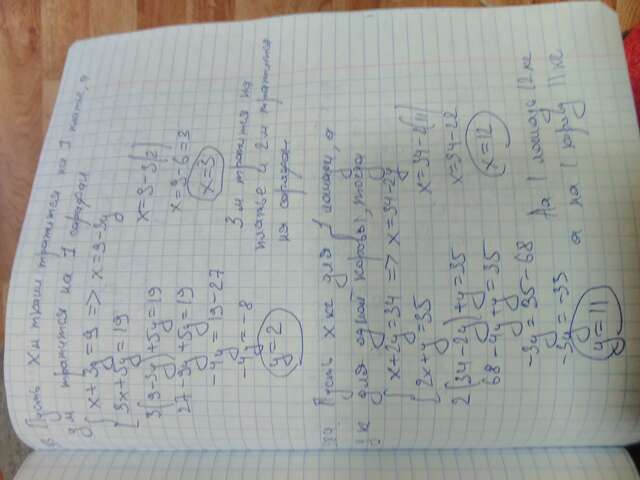 Пусть x м ткани тратится на 1 платье, а
y м тратится на 1 сарафан
{ x+3y=9 => x=9-3y
{ 3x+5y=19
3(9-3y)+5y=19
27-9y+5y=19
-4y=19-27
-4y=-8
y=2
x=9-3(2)
x=9-6=3
x=3
3 м тратится на
платье и 2 м тратится
на сарафан
Пусть x кг для 1 лошади, а
y кг для одной коровы, тогда
{ x+2y=34 => x=34-2y
{ 2x+y=35
2(34-2y)+y=35
68-4y+y=35
-3y=35-68
-3y=-33
y=11
x=34-2(11)
x=34-22
x=12
На 1 лошадь 12 кг
а на 1 корову 11 кг